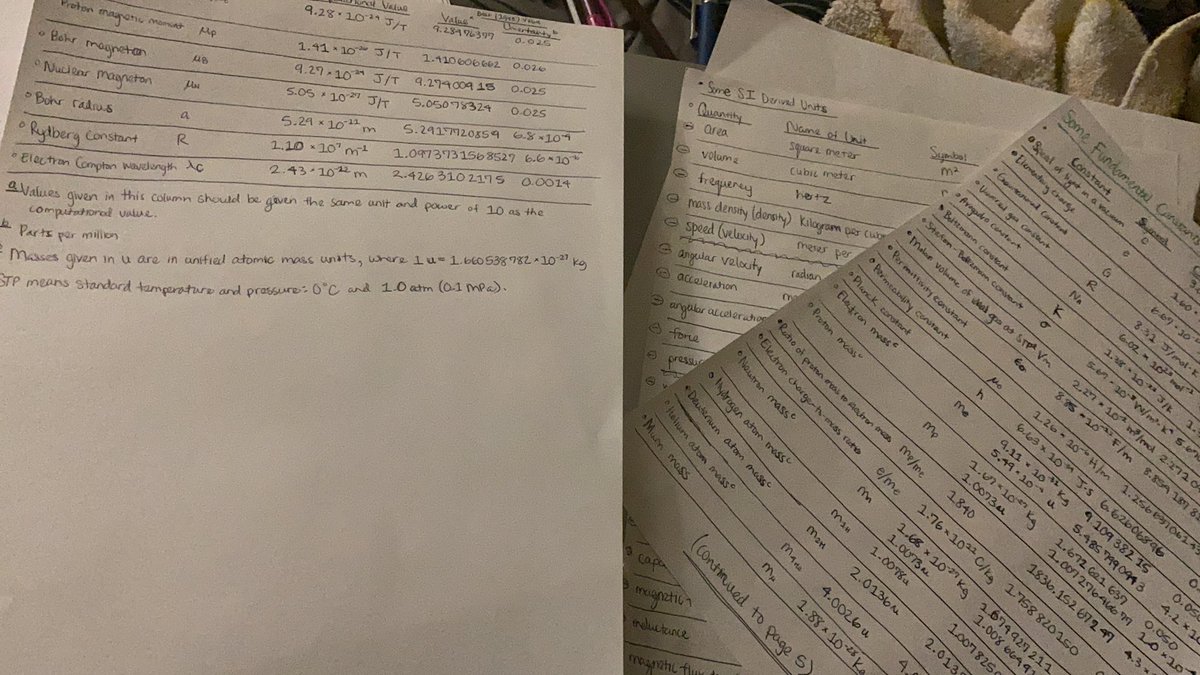 Value
Value
Uncertainty b
9.28 × 10⁻²⁴ J/T 9.28476377 0.025
Proton magnetic moment μp 1.41 × 10⁻²⁶ J/T 1.410606662 0.026
° Bohr magneton μB 9.27 × 10⁻²⁴ J/T 9.27400915 0.025
° Nuclear magneton μN 5.05 × 10⁻²⁷ J/T 5.05078324 0.025
° Bohr radius a 5.29 × 10⁻¹¹ m 5.2917720859 6.8 × 10⁻⁴
° Rydberg Constant R 1.10 × 10⁷ m⁻¹ 1.0973731568527 6.6 × 10⁻⁶
° Electron Compton Wavelength λc 2.43 × 10⁻¹² m 2.4263102175 0.0014
a Values given in this column should be given the same unit and power of 10 as the
computational value.
b Parts per million
c Masses given in u are in unified atomic mass units, where 1 u = 1.660538782 × 10⁻²⁷ kg
STP means standard temperature and pressure: 0°C and 1.0 atm (0.1 MPa).
• Some SI Derived Units
° Quantity Name of Unit Symbol
area square meter m²
volume cubic meter
frequency hertz
mass density (density) kilogram per cubic
speed (velocity) meter per
angular velocity radian
acceleration
angular acceleration
force
pressu
capa
magnetic
inductance
magnetic flux
Some Fundamental Constan
Constant Symbol
Speed of light in a vacuum c
Elementary charge e 1.60
Gravitational constant G 6.67 × 10
Universal gas constant R 8.31 J/mol
Avogadro constant NA 6.02 × 10²³ mol⁻¹
Boltzmann constant K 1.38 × 10⁻²³ J/K
Stefan-Boltzmann constant σ 5.67 × 10⁻⁸ W/m²·K⁴ 5.670
Molar volume of ideal gas at STP Vm 2.27 × 10⁻² m³/mol 2.271
Permittivity constant ε₀ 8.85 × 10⁻¹² F/m 8.854187
Permeability constant μ₀ 1.26 × 10⁻⁶ H/m 1.256637061
Planck constant h 6.63 × 10⁻³⁴ J·s 6.62606896 0.050
Electron mass c me 9.11 × 10⁻³¹ kg 9.10938215 0.050
5.49 × 10⁻⁴ u 5.4857990943 4.2 × 10
Proton mass c mp 1.67 × 10⁻²⁷ kg 1.672621637 0.050
1.0073 u 1.00727646677 1.0 × 10
Ratio of proton mass to electron mass mp/me 1840 1836.15267247 4.3 ×
Electron charge-to-mass ratio e/me 1.76 × 10¹¹ C/kg 1.758820150
Neutron mass c mn 1.68 × 10⁻²⁷ kg 1.674927211
1.0073u 1.0086649
Hydrogen atom mass c m1H 1.0078u 1.007825
Deuterium atom mass c m2H 2.0136u 2.013
Helium atom mass c m4He 4.0026u 4.
Muon mass mμ 1.88 × 10⁻²⁸ kg
(continued to page 5)